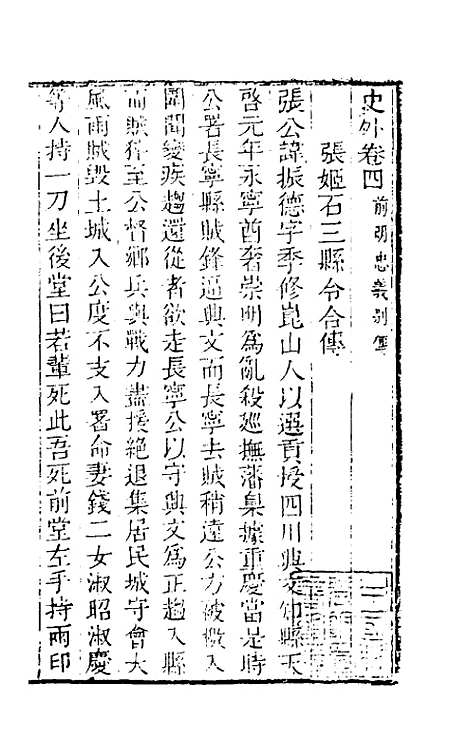 史外卷四 前明忠義別傳
張姬石三縣令合傳
張公諱振德字季修崑山人以選貢授四川興文知縣天
啓元年永寧酋奢崇明爲亂殺巡撫藩臬據重慶當是時
公署長寧縣賊鋒逼興文而長寧去賊稍遠公方被檄入
闈聞變疾趨還從者欲走長寧公以守興文爲正趨入縣
而賊猝至公督鄉兵與戰力盡援絕退集居民城守會大
風雨賊毀土城入公度不支入署命妻錢二女淑昭淑慶
等人持一刀坐後堂曰若輩死此吾死前堂左手持兩印